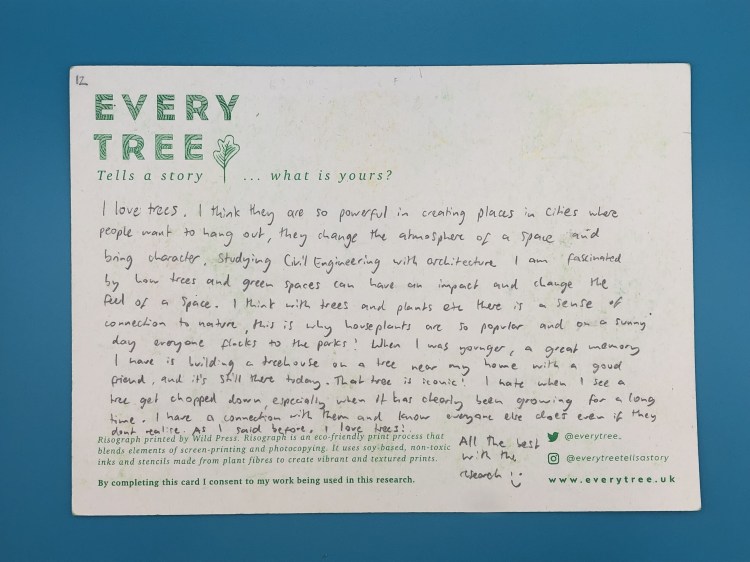 12
EVERY
TREE
Tells a story ... what is yours?
I love trees. I think they are so powerful in creating places in cities where
people want to hang out, they change the atmosphere of a space and
bring character. Studying Civil Engineering with architecture I am fascinated
by how trees and green spaces can have an impact and change the
feel of a space. I think with trees and plants etc there is a sense of
connection to nature, this is why houseplants are so popular and on a sunny
day everyone flocks to the parks! When I was younger, a great memory
I have is building a treehouse on a tree near my home with a good
friend, and it's still there today. That tree is iconic! I hate when I see a
tree get chopped down, especially when it has clearly been growing for a long
time. I have a connection with them and know everyone else does even if they
dont realise. As I said before, I love trees!
Risograph printed by Wild Press. Risograph is an eco-friendly print process that
blends elements of screen-printing and photocopying. It uses soy-based, non-toxic
inks and stencils made from plant fibres to create vibrant and textured prints.
By completing this card I consent to my work being used in this research.
All the best
with the
research :)
@everytree_
@everytreetellsastory
www.everytree.uk